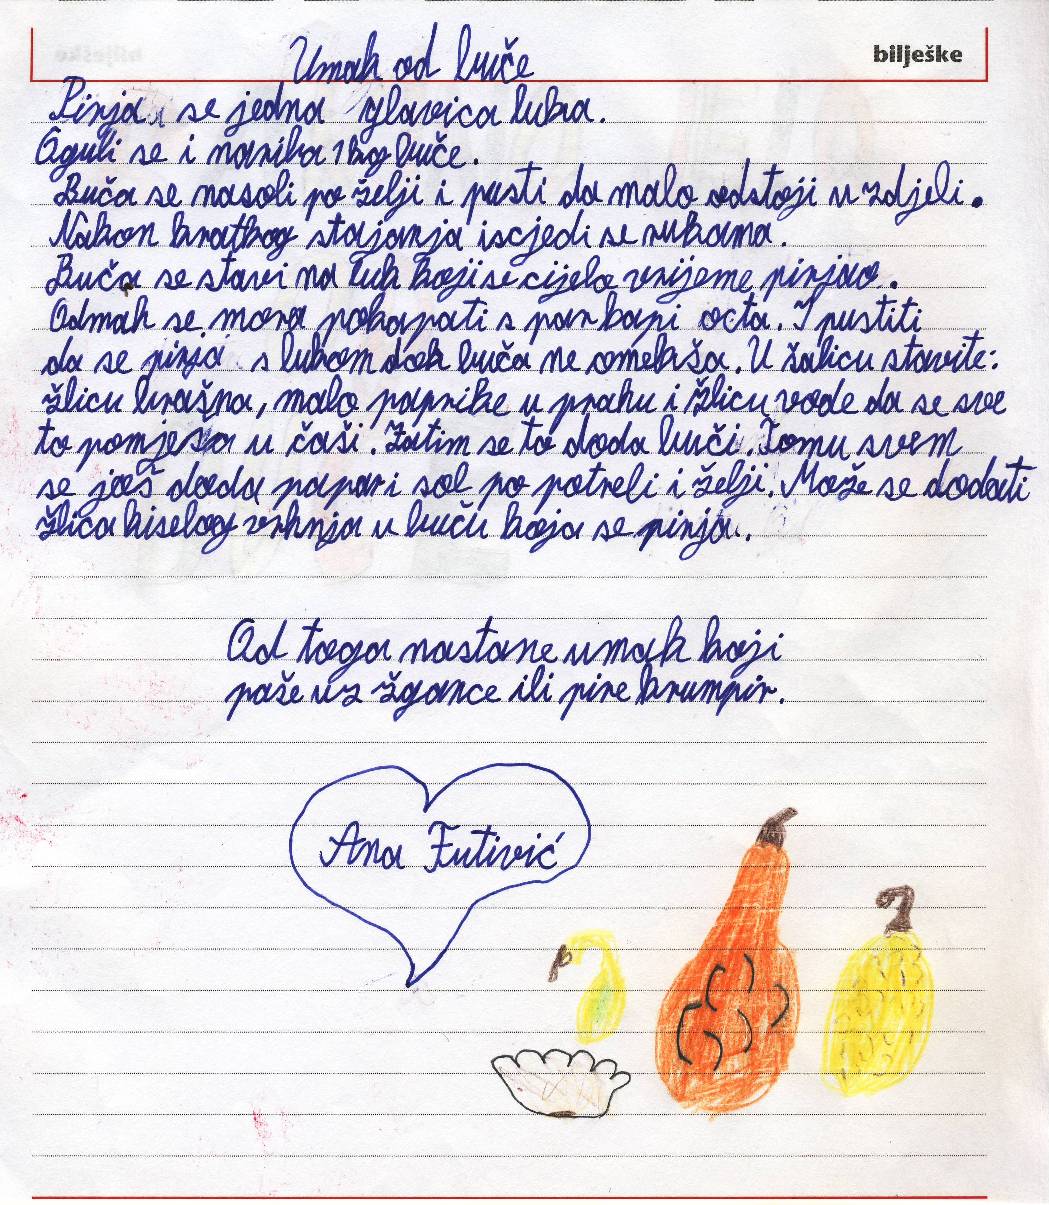 bilješke
Umak od buče
Pirja se jedna glavica luka.
Oguli se i nariba 1 kg buče.
Buča se nasoli po želji i pusti da malo odstoji u zdjeli.
Nakon kratkog stajanja iscjedi se rukama.
Buča se stavi na luk koji se cijelo vrijeme pirjao.
Odmah se mora pokapati s par kapi octa. I pustiti
da se pirja s lukom dok buča ne omekša. U šalicu stavite:
žlicu brašna, malo paprike u prahu i žlicu vode da se sve
to pomješa u čaši. Zatim se to doda buči. Tomu svem
se još doda papar i sol po potrebi i želji. Može se dodati
žlica kiselog vrhnja u buču koja se pirja.
Od toga nastane umak koji
paše uz žgance ili pire krumpir.
Ana Futivić